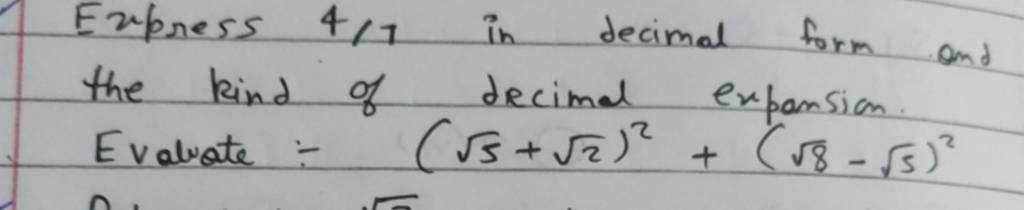 Express 4/7 in decimal form and
the kind of decimal expansion.
Evaluate :- (√5 + √2)² + (√8 - √5)²